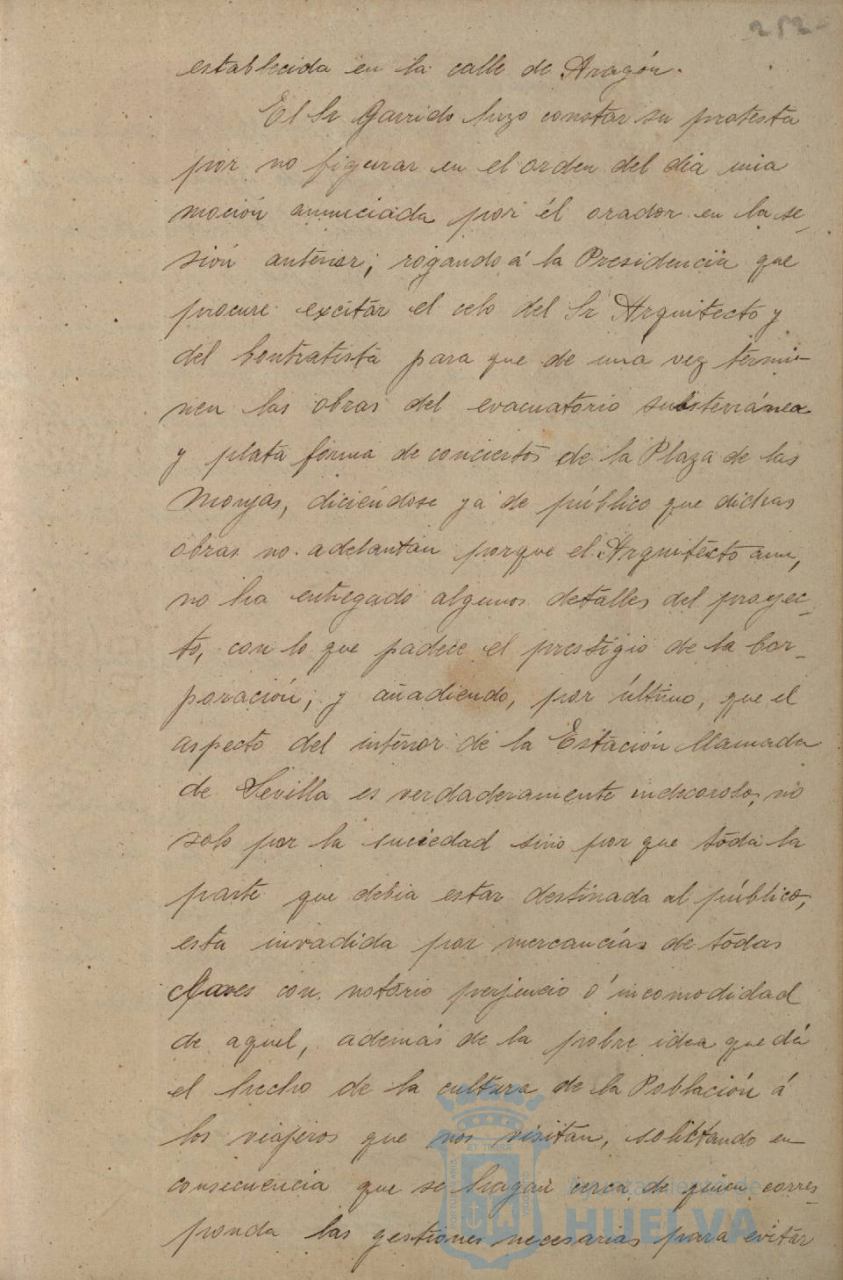 252-
establecida en la calle de Aragón.
El Sr Garrido hizo constar su protesta
por no figurar en el orden del dia una
moción anunciada por él orador en la se-
sión anterior, rogando á la Presidencia que
procure excitar el celo del Sr Arquitecto y
del Contratista para que de una vez termi-
nen las obras del evacuatorio substerránea
y plata forma de conciertos de la Plaza de las
Monjas, diciéndose ya de público que dichas
obras no adelantan porque el Arquitecto aun,
no ha entregado algunos detalles del proyec-
to, con lo que padece el prestigio de la Cor-
poración, y añadiendo, por último, que el
aspecto del interior de la Estación llamada
de Sevilla es verdaderamente indecoroso, no
solo por la suciedad sino por que toda la
parte que debia estar destinada al público,
esta invadida por mercancías de todas
clases con notorio perjuicio é incomodidad
de aquel, además de la pobre idea que dá
el hecho de la cultura de la Población á
los viajeros que nos visitan, solictando en
consecuencia que se hagan cerca de quien corres-
ponda las gestiones necesarias para evitar
Ayuntamiento de
HUELVA